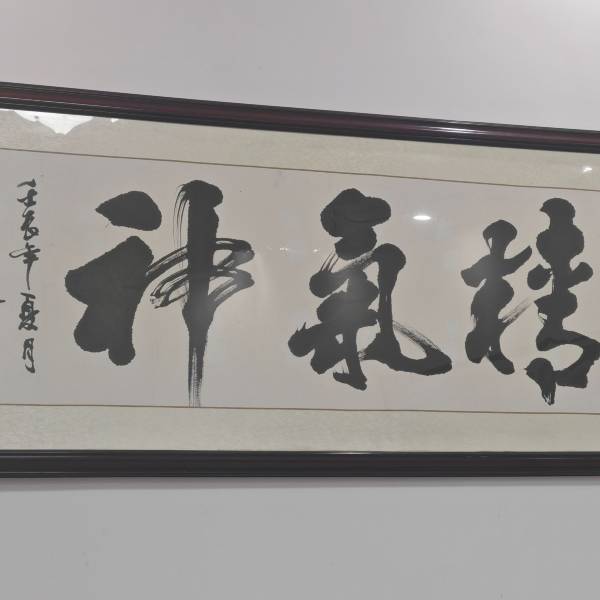 精氣神
壬辰年夏月